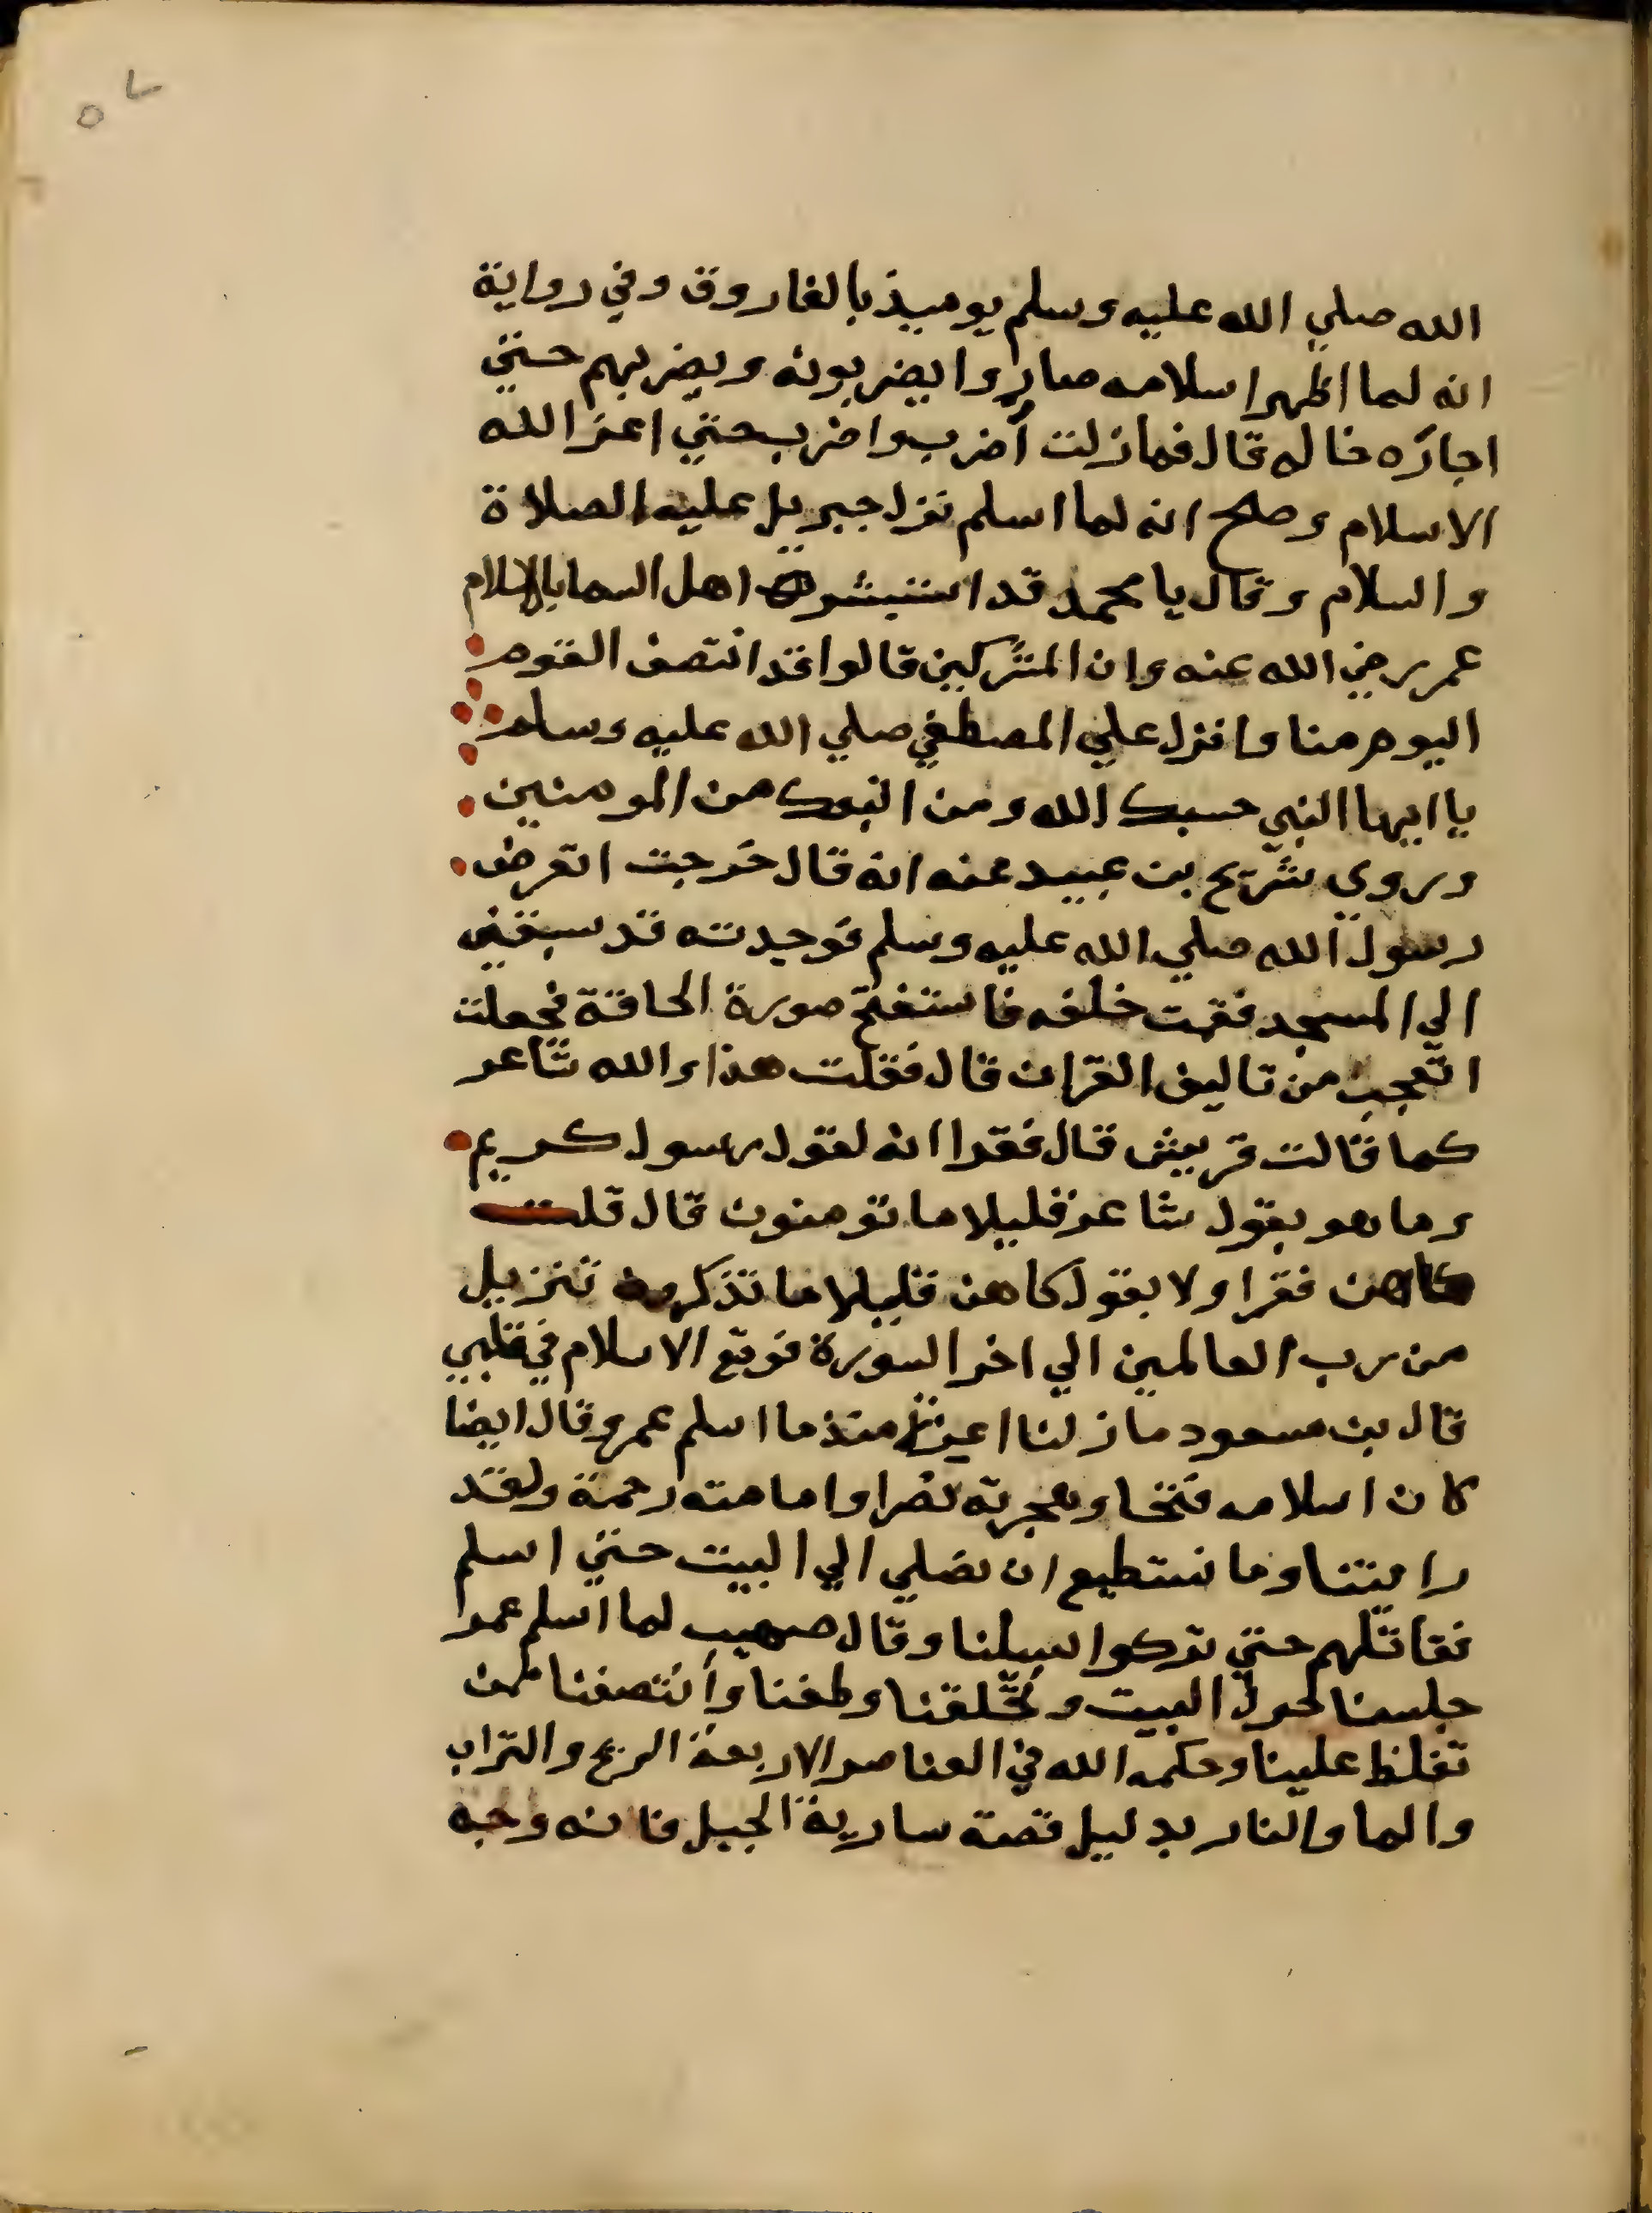 ٥٧
الله صلي الله عليه وسلم يوميذ بالفاروق وفي رواية
انه لما اظهر اسلامه صاروا يضربونه ويضربهم حتي
اجازه خاله قال فمازلت أضرب واضرب حتي اعز الله
الاسلام وصح انه لما اسلم نزل جبريل عليه الصلاة
والسلام وقال يا محمد قد استبشر اهل السما بالاسلام
عمر رضي الله عنه وان المشركين قالوا قد انتصف القوم
اليوم منا وانزل علي المصطفي صلي الله عليه وسلم
يا ايها النبي حسبك الله ومن اتبعك من المومنين
وروي شريح بن عبيد عنه انه قال خرجت اتعرض
رسول الله صلي الله عليه وسلم فوجدته قد سبقني
الي المسجد فقمت خلفه فاستفتح صورة الحاقة فجعلت
اتعجب من تاليف القران قال فقلت هذا والله شاعر
كما قالت قريش قال فقرا انه لقول رسول كريم
وما هو بقول شاعر قليلا ما تومنون قال قلت
كاهن فقرا ولا بقول كاهن قليلا ما تذكرون تنزيل
من رب العالمين الي اخر السورة فوقع الاسلام في قلبي
قال بن مسعود ما زلنا اعزة منذ ما اسلم عمر وقال ايضا
كان اسلامه فتحا وهجرته نصرا وامامته رحمة ولقد
رايتنا وما نستطيع ان نصلي الي البيت حتي اسلم
فقاتلهم حتي تركوا سبيلنا وقال صهيب لما اسلم عمر
جلسنا حول البيت وتحلقنا وطفنا وأنتصفنا ممن
تغلظ علينا وحكمه الله في العناصر الاربعة الريح والتراب
والما والنار بدليل قصة سارية الجبل فانه وجه